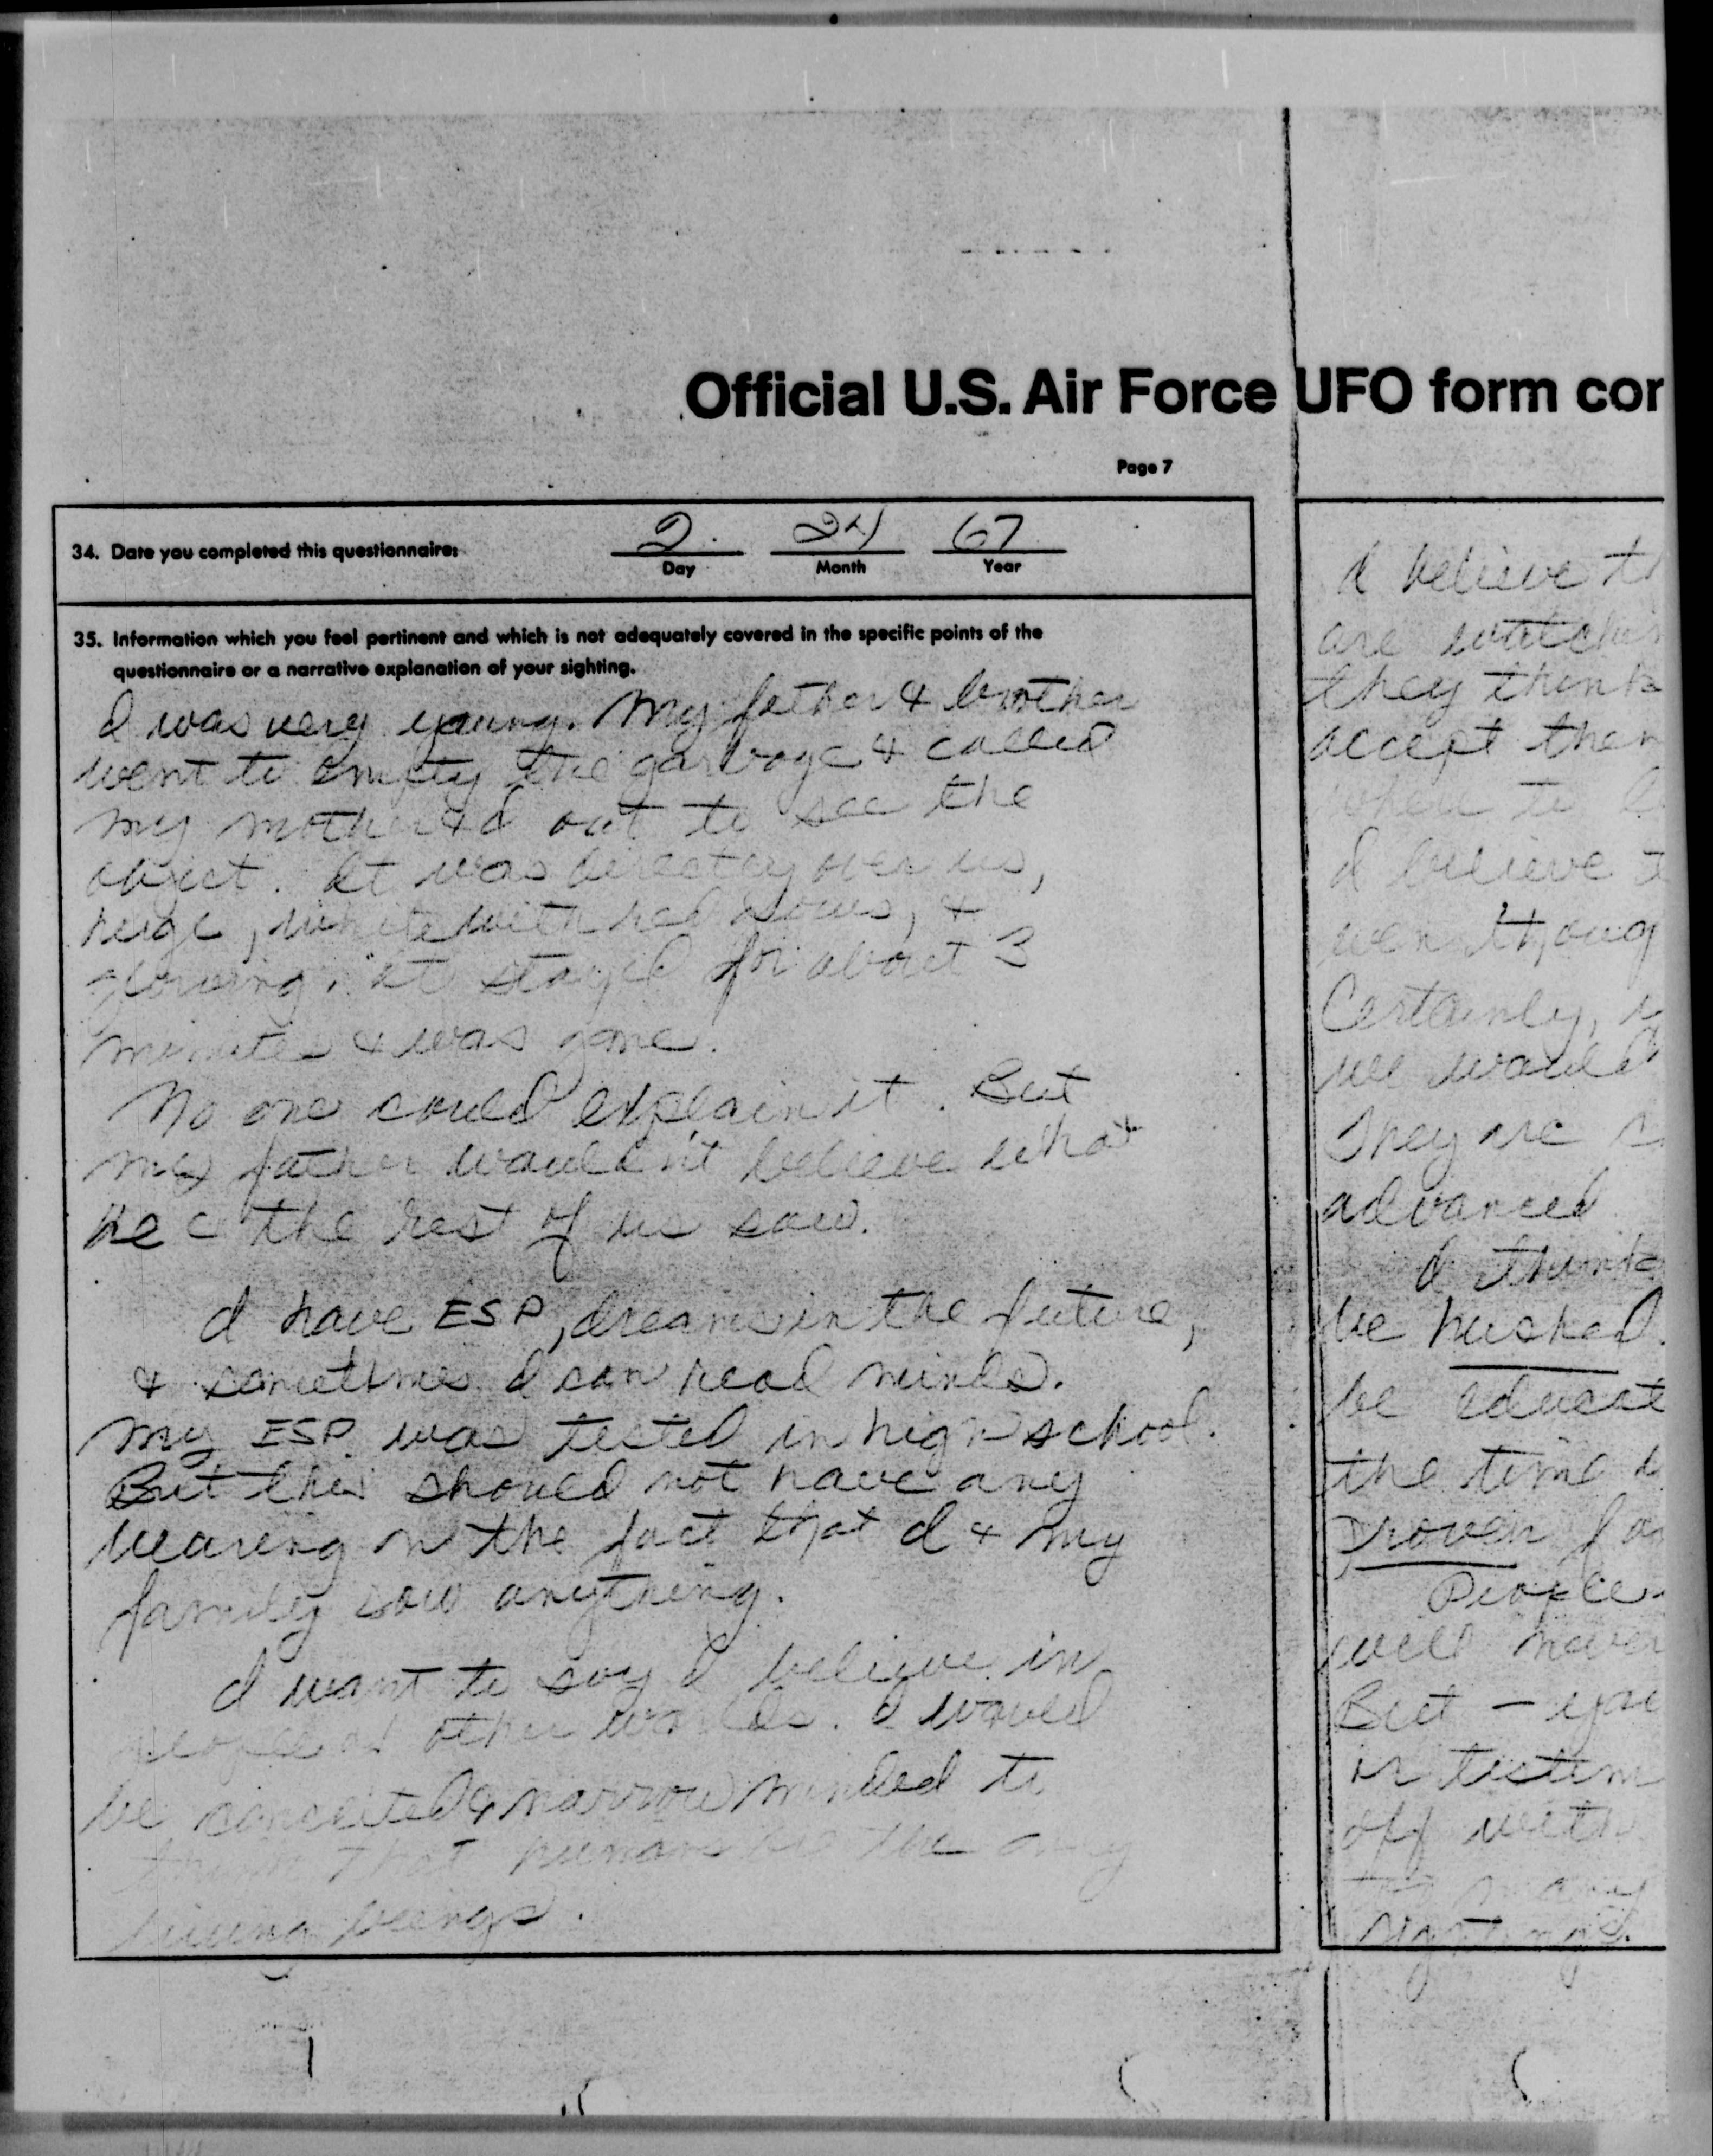 Official U.S. Air Force UFO form cor
Page 7
34. Date you completed this questionnaire: 2 24 67
Day Month Year
35. Information which you feel pertinent and which is not adequately covered in the specific points of the
questionnaire or a narrative explanation of your sighting.
I was very young. My father & brother
went to empty the garbage & called
my mother & I out to see the
object. It was directly over us,
huge, white with red glows, &
glowing. It stayed for about 3
minutes & was gone.
No one could explain it. But
my father wouldn't believe what
he & the rest of us saw.
I have ESP, dreams in the future,
& sometimes I can read minds.
My ESP was tested in high school.
But this should not have any
bearing on the fact that I & my
family saw anything.
I want to say I believe in
people of other worlds. I would
be conceited & narrow minded to
think that humans be the only
living beings.
I believe th
are watchin
they think
accept them
when to
I believe
even thoug
Certainly,
we would
They are
advanced
I think
be hushed.
be educate
the time
proven for
People
will never
But - you
or testim
off with
too many
sightings.